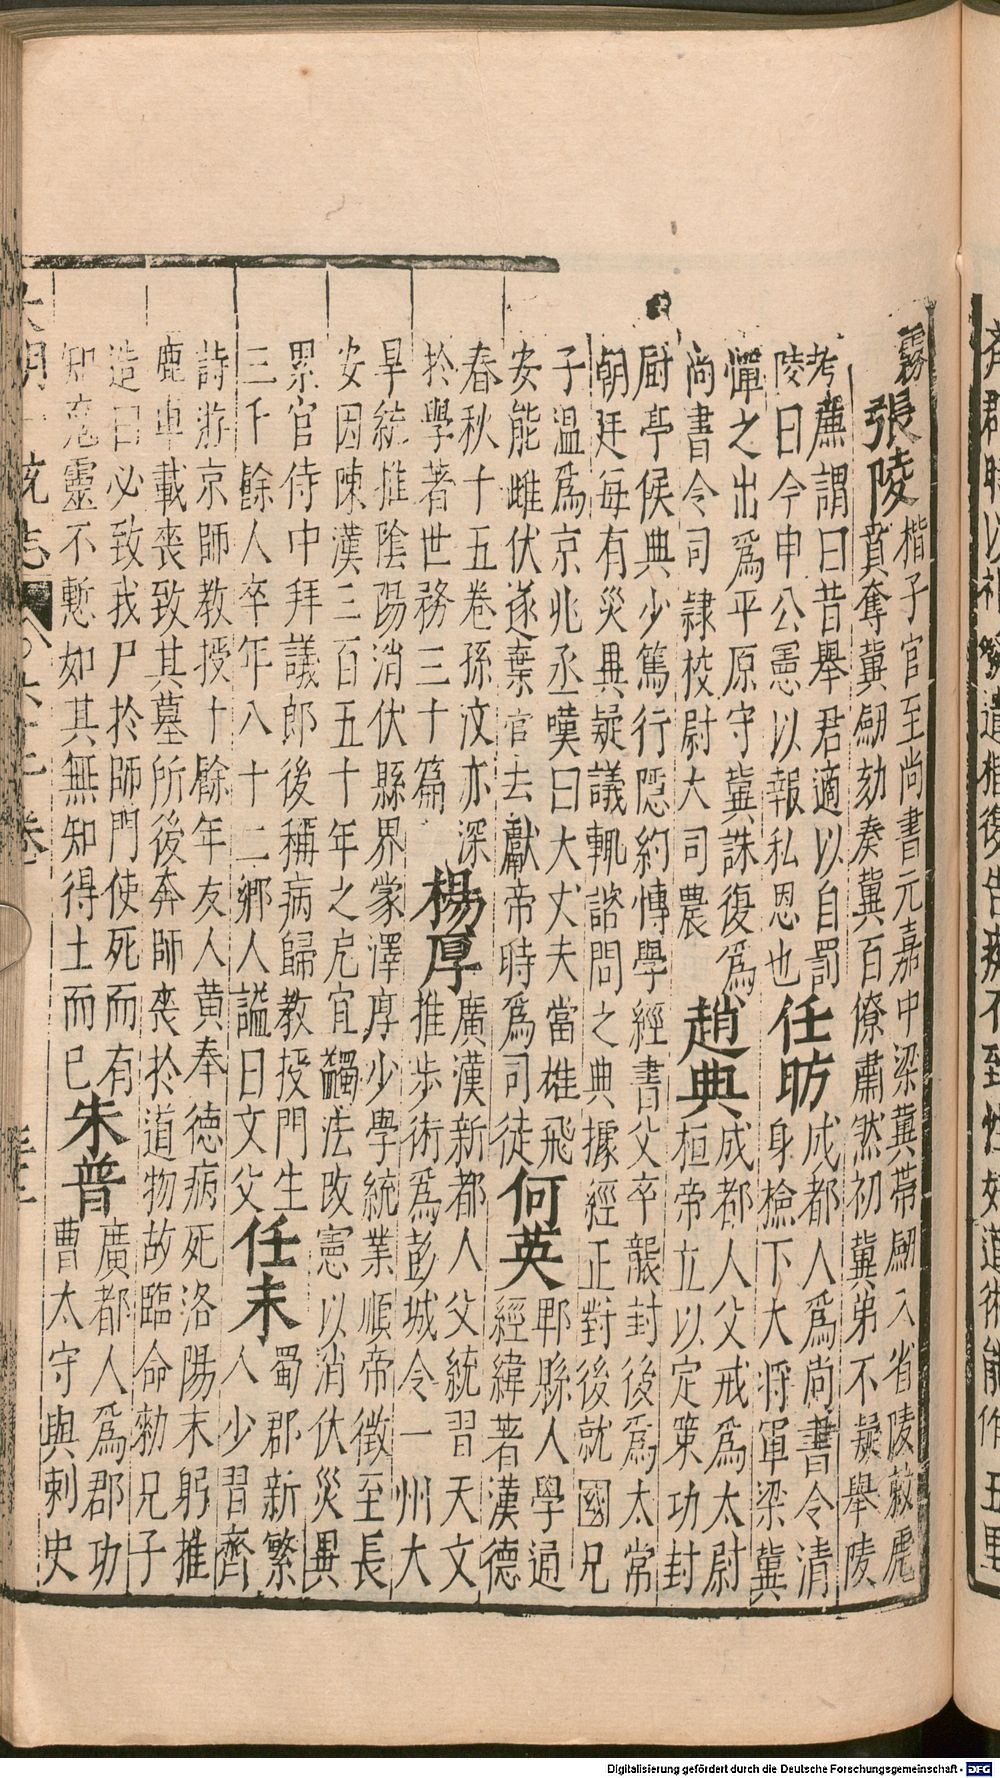 霧張陵楷子官至尚書元嘉中梁冀帶劒入省陵敕虎
賁奪冀劒劾奏冀百僚肅然初冀弟不疑舉陵
考廉謂曰昔舉君適以自罰
陵曰今申公憲以報私恩也
任昉成都人爲尚書令清
身檢下大將軍梁冀
憚之出爲平原守冀誅復爲
尚書令司隸校尉大司農
趙典成都人父戒爲太尉
桓帝立以定策功封
厨亭侯典少篤行隱約博學經書父卒襲封後爲太常
朝廷每有災異疑議輒諮問之典據經正對後就國兄
子温爲京兆丞嘆曰大丈夫當雄飛
安能雌伏遂棄官去獻帝時爲司徒
何英郫縣人學通
經緯著漢德
春秋十五卷孫汶亦深
於學著世務三十篇
楊厚廣漢新都人父統習天文
推步術爲彭城令一州大
旱統推陰陽消伏縣界蒙澤厚少學統業順帝徵至長
安因陳漢三百五十年之戹宜蠲法改憲以消伏災異
累官侍中拜議郎後稱病歸教授門生
三千餘人卒年八十二鄉人謚曰文父
任末蜀郡新繁
人少習齊
詩游京師教授十餘年友人黃奉德病死洛陽末躬推
鹿車載喪致其墓所後奔師喪於道物故臨命勑兄子
造曰必致我尸於師門使死而有
知䰟靈不慙如其無知得土而已
朱普廣都人爲郡功
曹太守與刺史
大明一統志
Digitalisierung gefördert durch die Deutsche Forschungsgemeinschaft - DFG